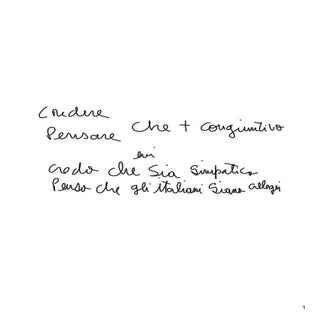 Credere
Pensare che + congiuntivo
lui
credo che sia simpatico
Penso che gli italiani siano allegri
1